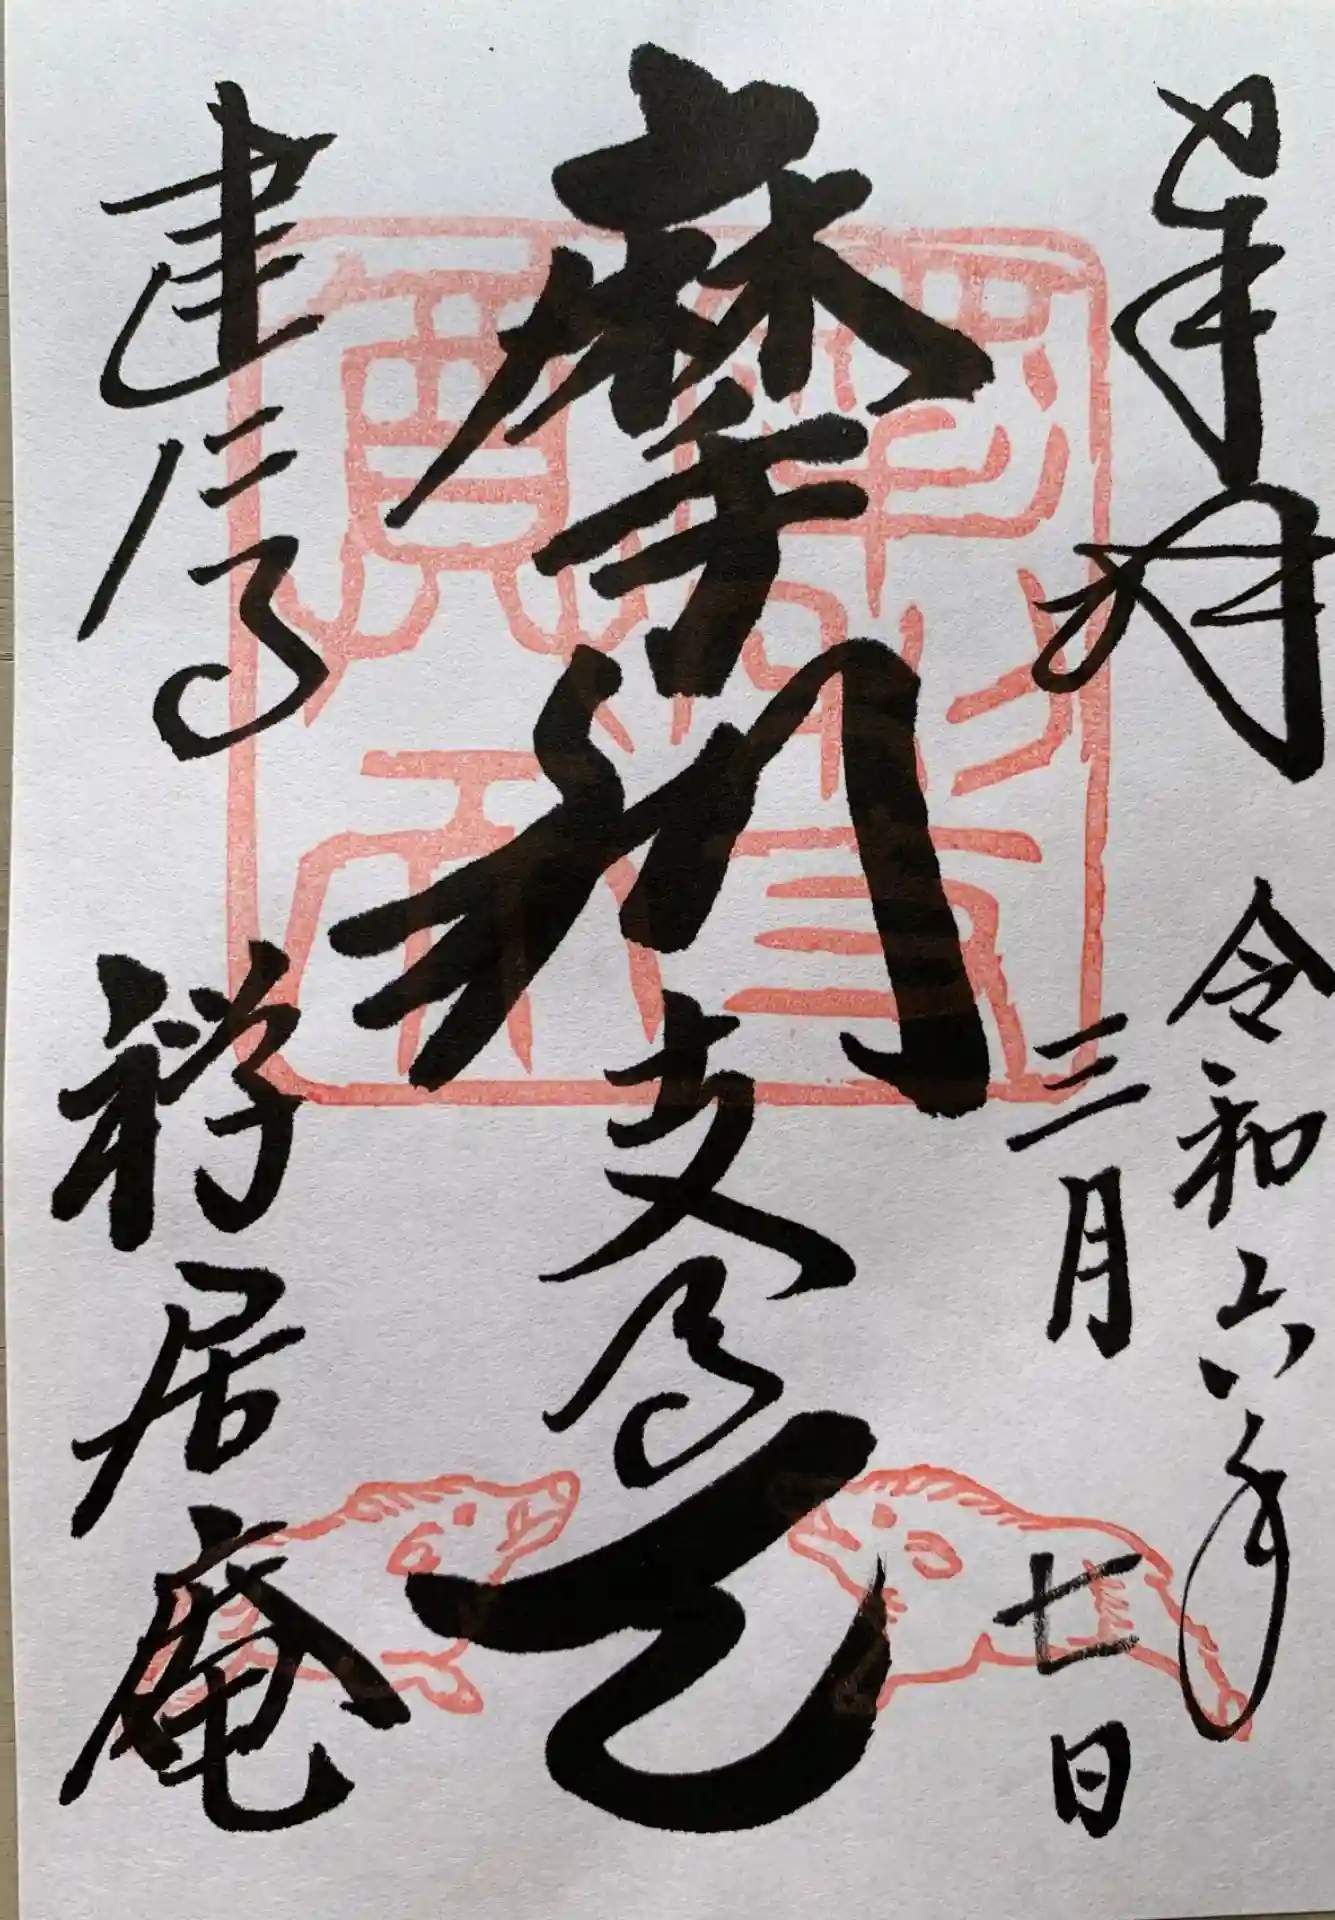 奉拝
令和六年
三月
七日
摩利支尊天
建仁寺
禅居庵